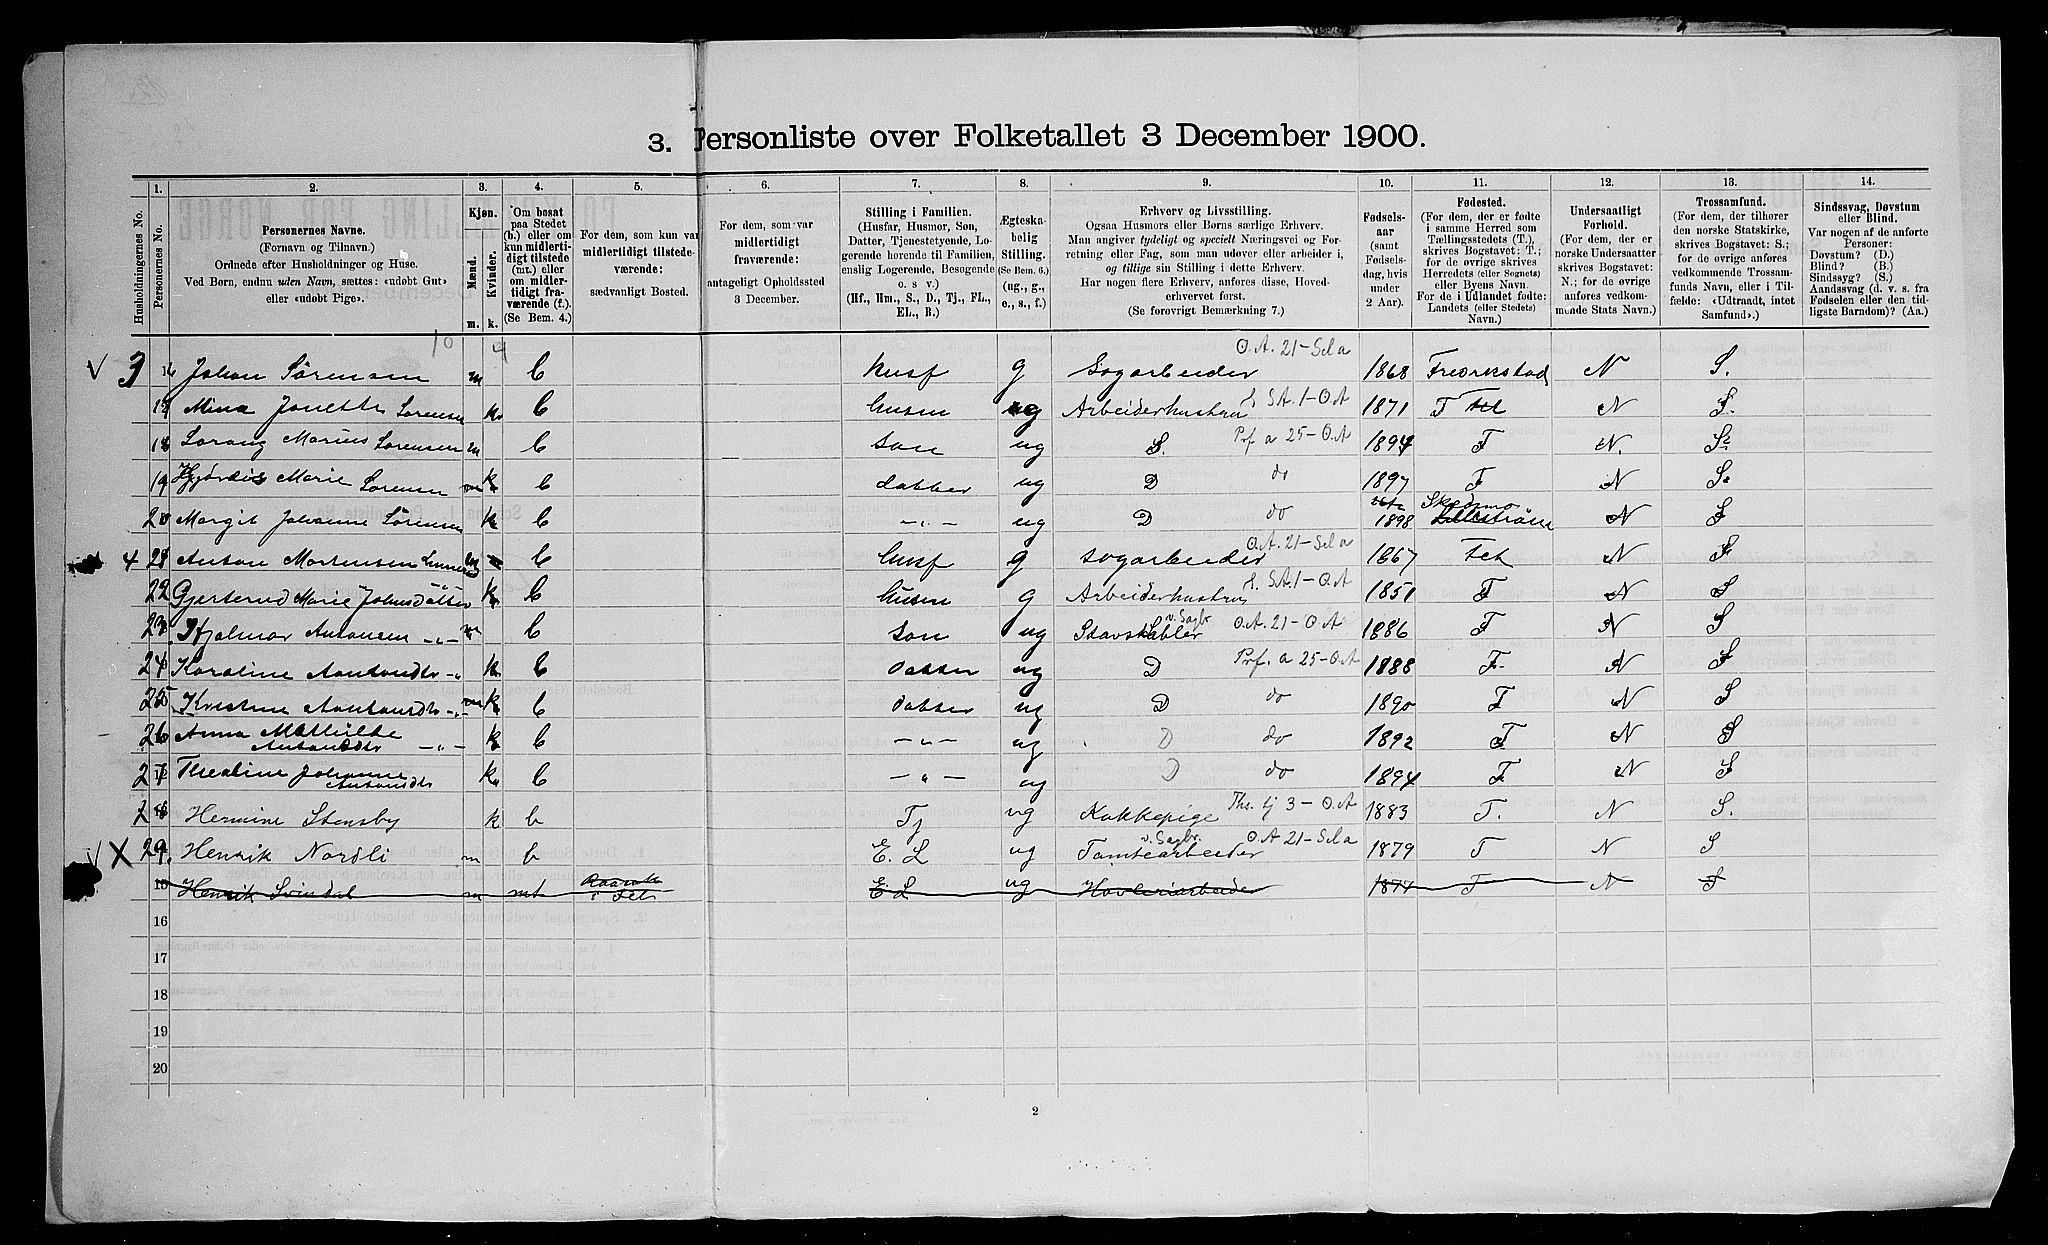 3. Personliste over Folketallet 3 December 1900.
1. 2. 3. 4. 5. 6. 7. 8. 9. 10. 11. 12. 13. 14.
Husholdningernes No.
Personernes No.
Personernes Navne.
(Fornavn og Tilnavn.)
Ordnede efter Husholdninger og Huse.
Ved Børn, endnu uden Navn, sættes: «udøbt Gut»
eller «udøbt Pige».
Kjøn.
Mænd.
Kvinder.
m. k.
Om bosat
paa Stedet
(b.) eller om
kun midlerti-
digt tilstede
(mt.) eller
om midler-
tidigt fra-
værende (f.).
(Se Bem. 4.)
For dem, som kun var
midlertidigt tilstede-
værende:
sædvanligt Bosted.
For dem, som var
midlertidigt
fraværende:
antageligt Opholdssted
3 December.
Stilling i Familien.
(Husfar, Husmor, Søn,
Datter, Tjenestetyende, Lo-
gerende hørende til Familien,
enslig Logerende, Besøgende
o. s v.)
(Hf., Hm., S., D., Tj., FL.,
EL., B.)
Ægteska-
belig
Stilling.
(Se Bem. 6.)
(ug., g.,
e., s., f.)
Erhverv og Livsstilling.
Ogsaa Husmors eller Børns særlige Erhverv.
Man angiver tydeligt og specielt Næringsvei og For-
retning eller Fag, som man udøver eller arbeider i,
og tillige sin Stilling i dette Erhverv.
Har nogen flere Erhverv, anføres disse, Hoved-
erhvervet først.
(Se forøvrigt Bemærkning 7.)
Fødsels-
aar
(samt
Fødsels-
dag, hvis
under
2 Aar).
Fødested.
(For dem, der er fødte
i samme Herred som
Tællingsstedets (T.),
skrives Bogstavet: T.;
for de øvrige skrives
Herredets (eller Sognets)
eller Byens Navn.
For de i Udlandet fødte:
Landets (eller Stedets)
Navn.)
Undersaatligt
Forhold.
(For dem, der er
norske Undersaatter
skrives Bogstavet:
N.; for de øvrige
anføres vedkom-
mende Stats Navn.)
Trossamfund.
(For dem, der tilhører
den norske Statskirke,
skrives Bogstavet: S.;
for de øvrige anføres
vedkommende Trossam-
funds Navn, eller i Til-
fælde: «Udtraadt, intet
Samfund».)
Sindssvag, Døvstum
eller Blind.
Var nogen af de anførte
Personer:
Døvstum? (D.)
Blind? (B.)
Sindssyg? (S.)
Aandssvag (d. v. s. fra
Fødselen eller den tid-
ligste Barndom)? (Aa.)
10 9
3 16 Johan Sørensen m b husf g Sagarbeider O.A. 21-Sela 1868 Fredrikstad N S.
17 Mina Janette Sørensen k b husm g Arbeiderhustru H. SA. 1-O.A 1871 T N S.
18 Lorang Marius Sørensen m b søn ug S. Prf. a 25-O.A 1894 T N. S.
19 Hjørdis Marie Sørensen k b datter ug D do 1897 T N S.
20 Margit Johanne Sørensen k b -"- ug D do 1898 Skedsmo N S
4 21 Anton Mortensen b husf g Sagarbeider O.A. 21-Sela 1867 Fet N S
22 Gjertrud Marie Johnsdatter k b husm g Arbeiderhustru H. SA. 1-O.A 1851 T N S
23 Hjalmar Antonsen -"- m b søn ug Stavstabler v. Sagbr O.A. 21-O.A 1886 T N S
24 Karoline Antonsdtr -"- k b datter ug D Prf. a 25-O.A 1888 T. N S
25 Kristine Antonsdtr -"- k b datter ug D do 1890 T N S
26 Anna Mathilde Antonsdtr -"- k b -"- ug D do 1892 T N S
27 Thealine Johanne Antonsdtr k b -"- ug D do 1894 T N S
28 Hermine Stensby k b Tj ug Kokkepige Ths. tj 3-O.A 1883 T. N S.
X 29. Henrik Nordli m b E. L ug Tomtearbeider v. Sagbr. O.A 21-Sela 1879 T N S
15 Henrik Svindal m mt i Fet E L ug Høvleriarbeider 1877 T N S
16
17
18
19
20
2